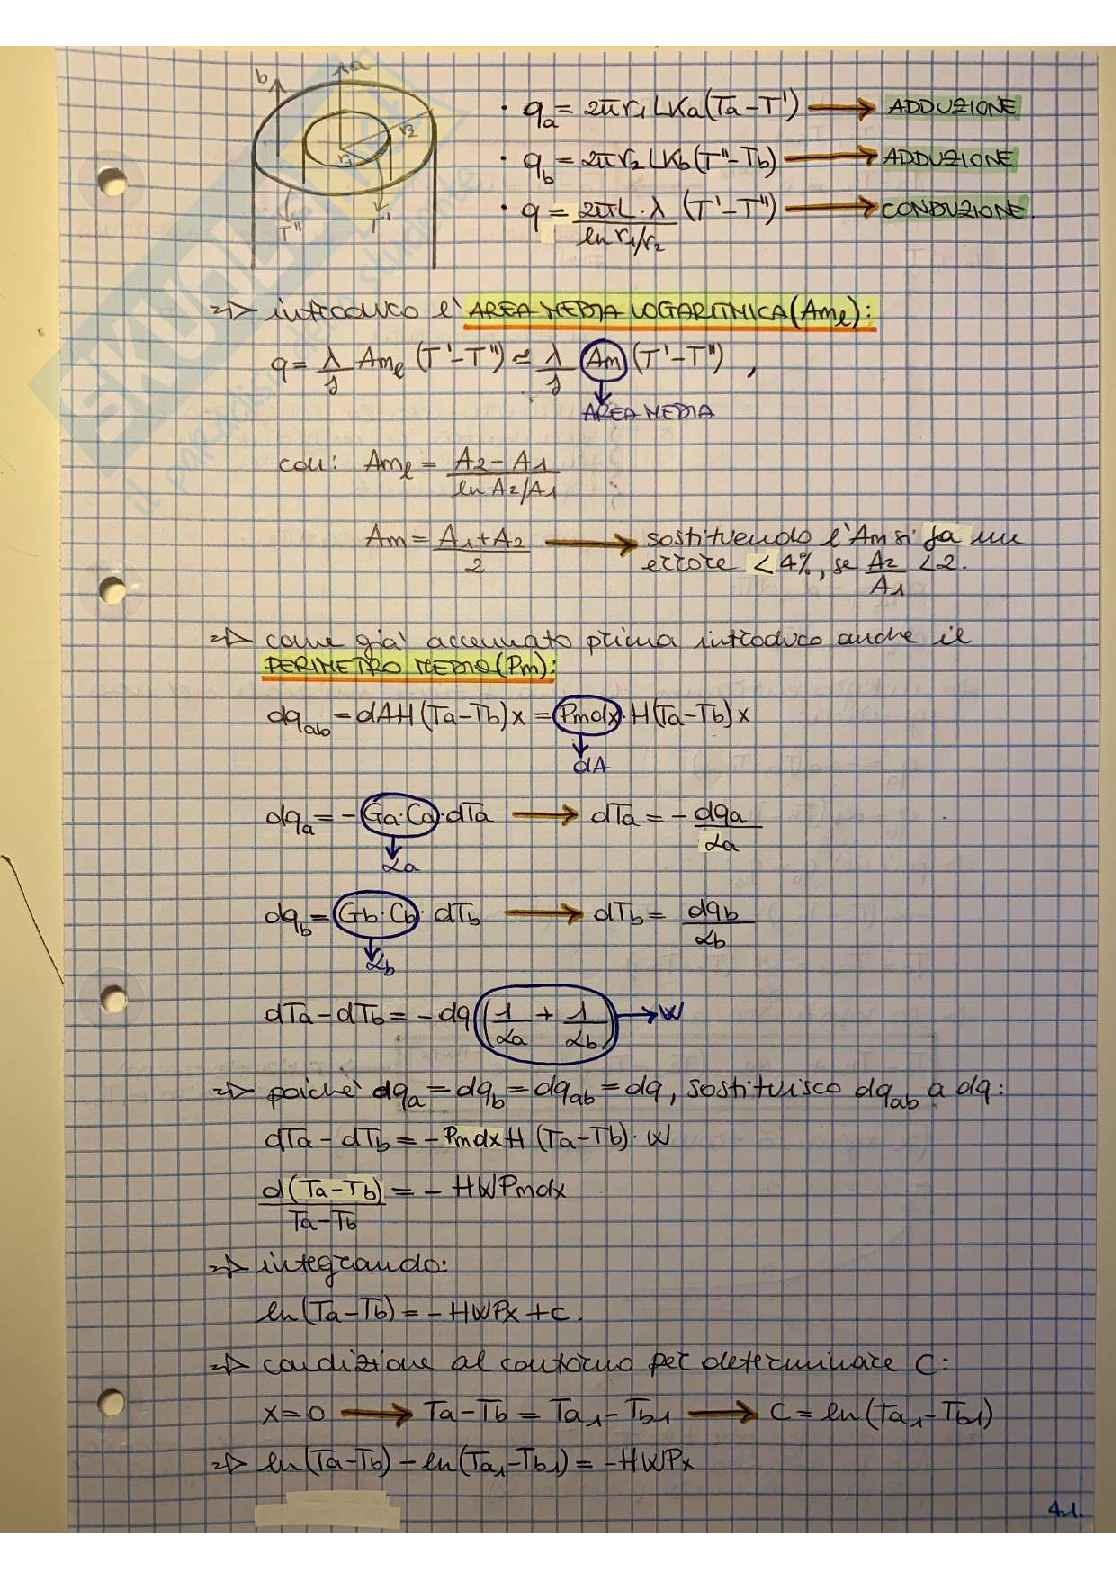 b a
r1 r2
T" T'
• qa = 2πr1 LKa(Ta-T') → ADDUZIONE
• qb = 2πr2 LKb(T"-Tb) → ADDUZIONE
• q = 2πL·λ/ln r1/r2 (T'-T") → CONDUZIONE.
⇒ introduco l'AREA MEDIA LOGARITMICA (Aml):
q = λ/s Aml (T'-T") ≃ λ/s Am (T'-T"),
AREA MEDIA
con: Aml = A2-A1/ln A2/A1
Am = A1+A2/2 → sostituendo l'Am si fa un
errore <4%, se A2/A1 <2.
⇒ come già accennato prima introduco anche il
PERIMETRO MEDIO (Pm):
dqab = dAH(Ta-Tb)x = Pmdx·H(Ta-Tb)x
dA
dqa = -Ga·Ca·dTa → dTa = -dqa/αa
αa
dqb = Gb·Cb·dTb → dTb = dqb/αb
αb
dTa-dTb = -dq(1/αa + 1/αb) → W
⇒ poiché dqa = dqb = dqab = dq, sostituisco dqab a dq:
dTa-dTb = -PmdxH(Ta-Tb)·W
d(Ta-Tb)/Ta-Tb = -HWPmdx
⇒ integrando:
ln(Ta-Tb) = -HWPx+c.
⇒ condizione al contorno per determinare C:
x=0 → Ta-Tb = Ta1-Tb1 → C = ln(Ta1-Tb1)
⇒ ln(Ta-Tb)-ln(Ta1-Tb1) = -HWPx
4.1.